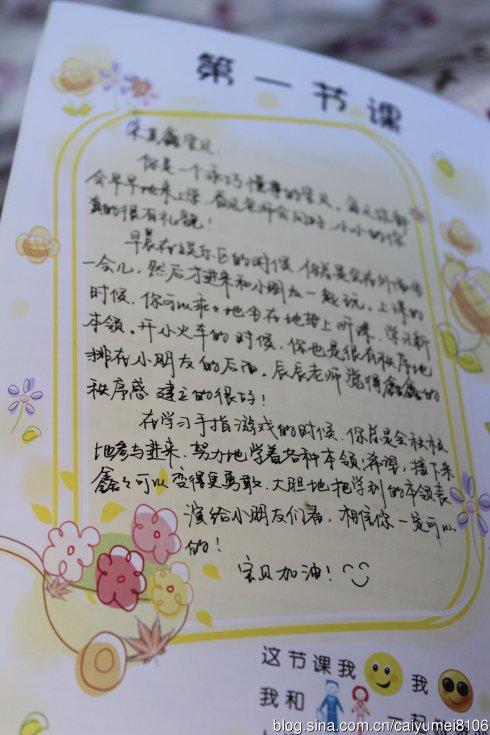 第一节课
朱其鑫宝贝:
你是一个乖巧懂事的宝贝。每天你都
会早早地来上学，看见老师会问好，小小的你
真的很有礼貌！
早晨在娱乐区的时候，你总是会在外面
一会儿，然后才进来和小朋友一起玩。上课的
时候，你可以乖々地坐在地垫上听课，学习新
本领。开小火车的时候，你也是很有秩序地
排在小朋友的后面。辰辰老师觉得鑫鑫的
秩序感建立的很好！
在学习手指游戏的时候，你总是会积极
地参与进来，努力地学着各种本领。希望，接下来
鑫々可以变得更勇敢、大胆地把学到的本领表
演给小朋友们看，相信你一定可以
的！
宝贝加油！
这节课我 我
我和
blog.sina.com.cn/caiyumei8106